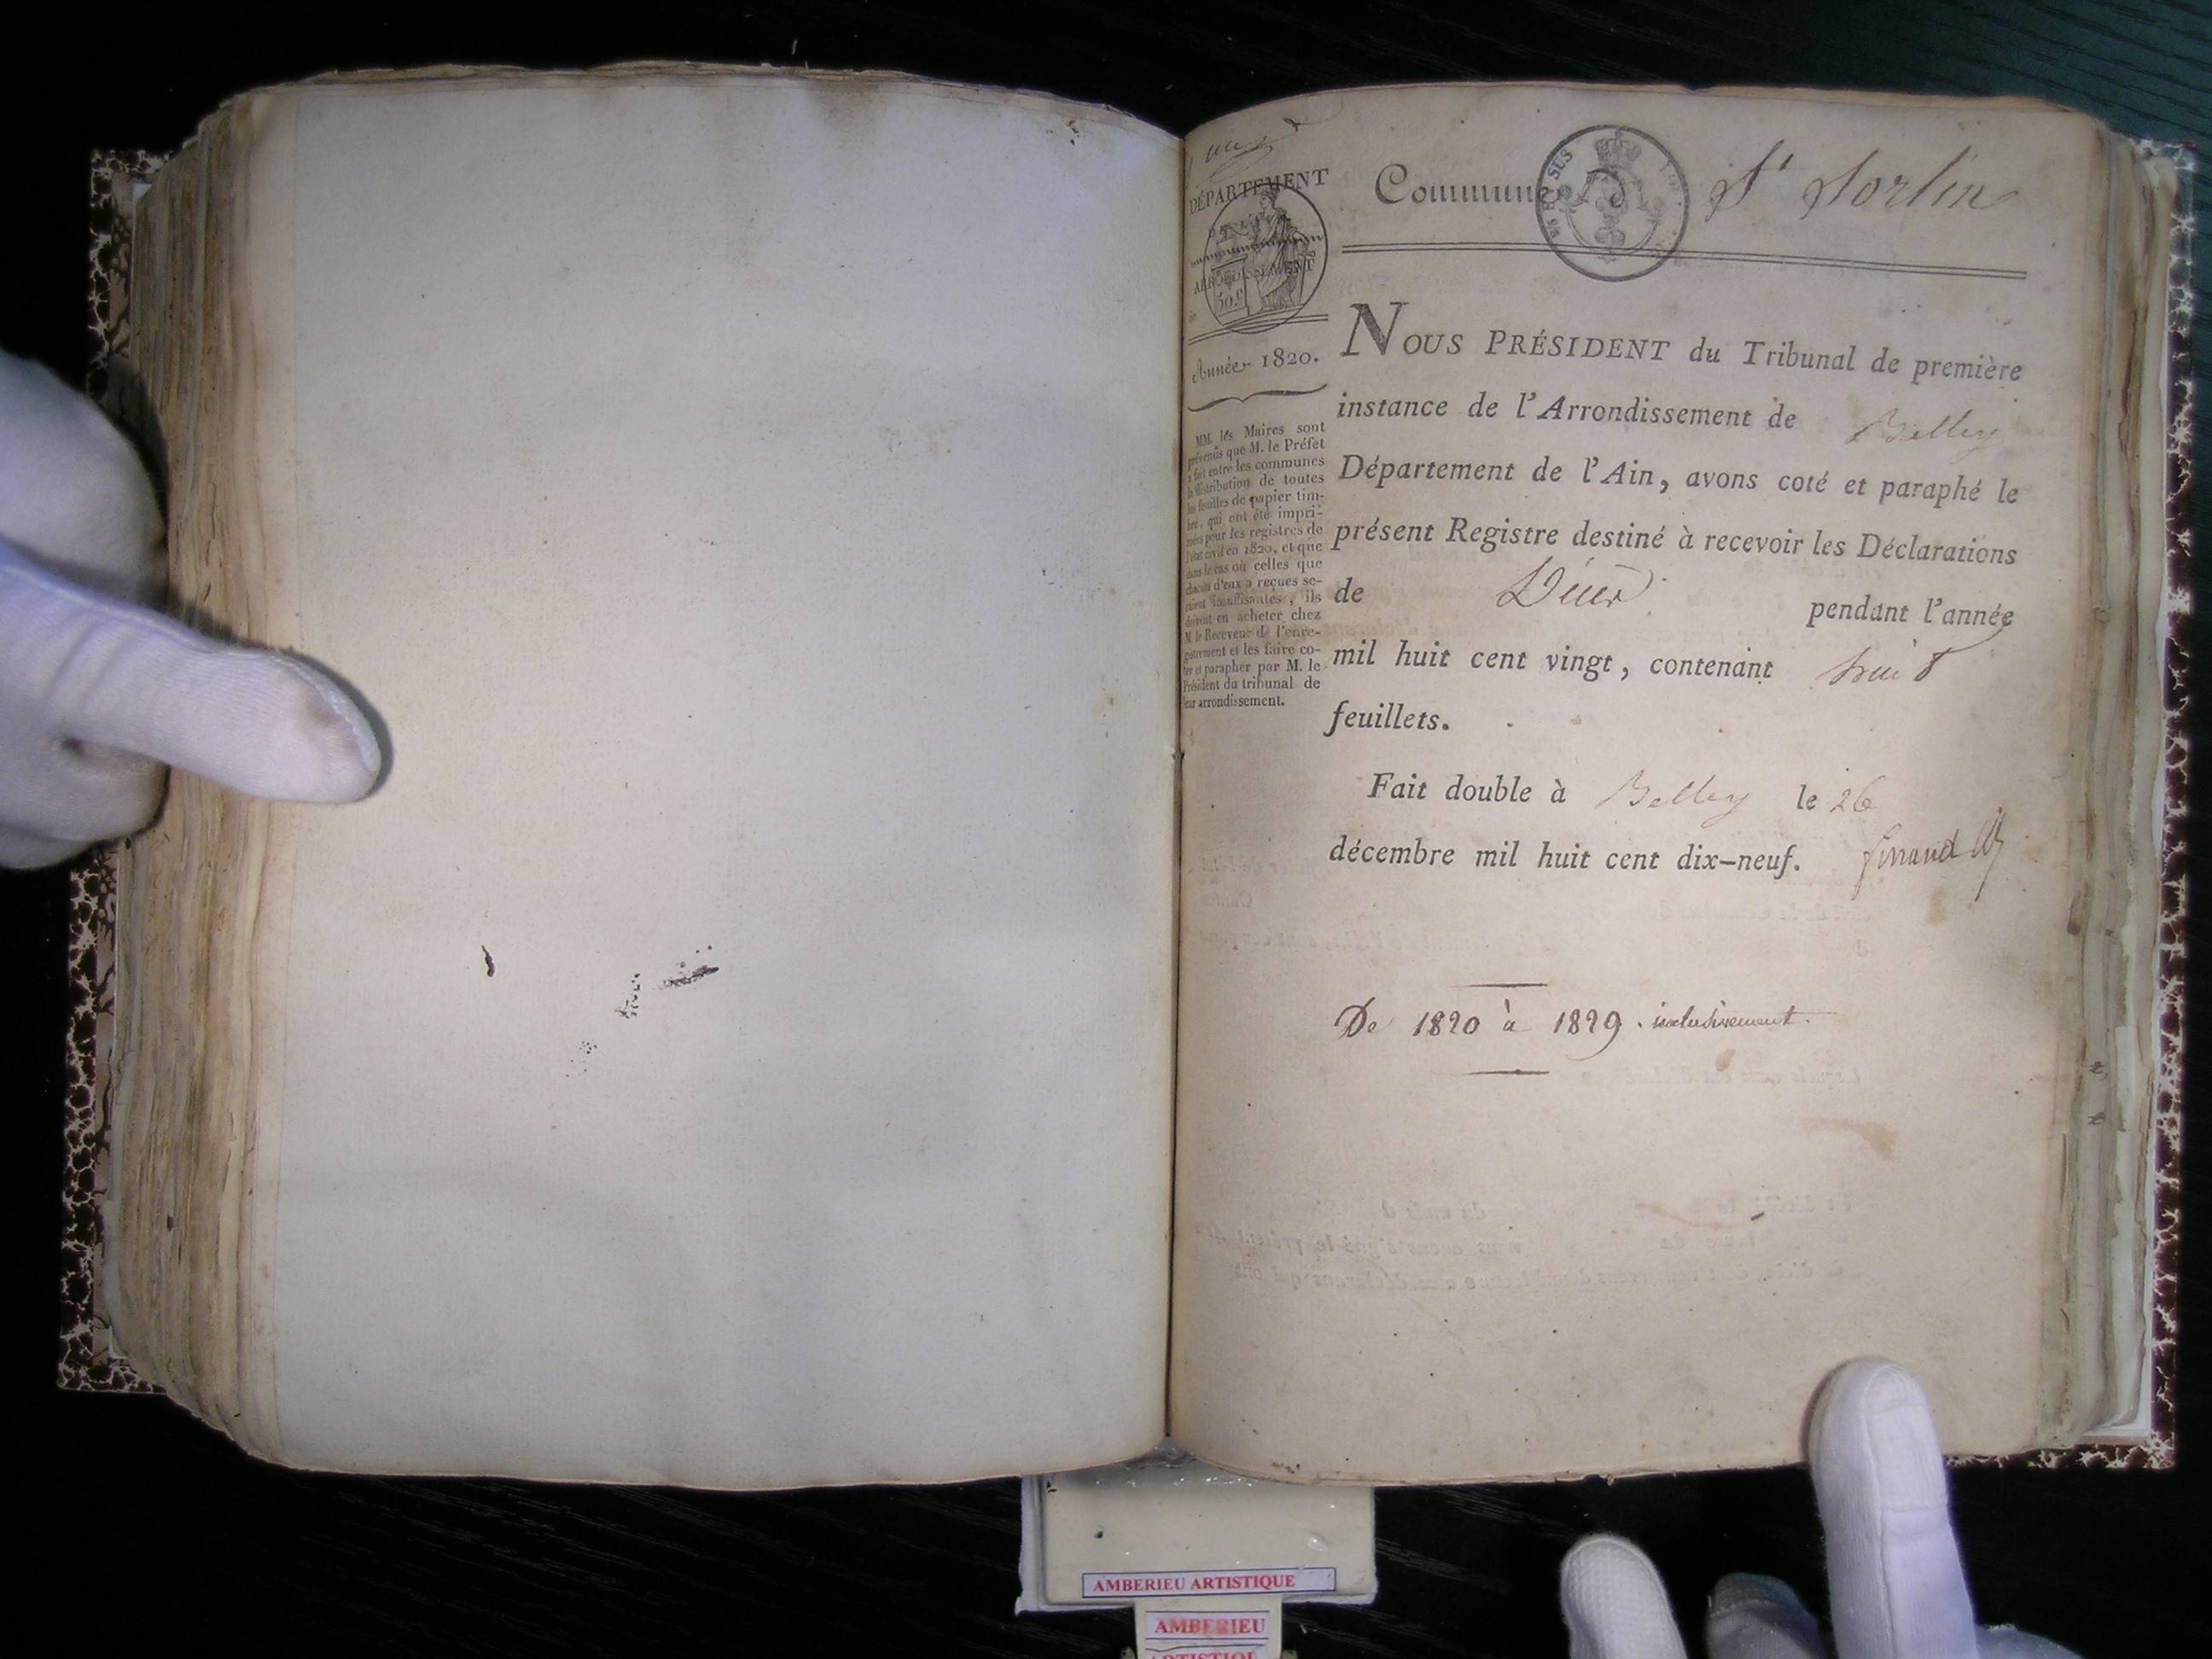 DÉPARTEMENT
DE L'AIN
ARRONDISSEMENT
de
50 c
Année 1820.
MM. les Maires sont
prévenus que M. le Préfet
a fait entre les communes
la distribution de toutes
les feuilles de papier tim-
bré, qui ont été impri-
mées pour les registres de
l'état civil en 1820, et que
dans le cas où celles que
chacun d'eux a reçues se-
raient insuffisantes, ils
devront en acheter chez
M. le Receveur de l'enre-
gistrement et les faire co-
ter et parapher par M. le
Président du tribunal de
leur arrondissement.
Commune D St Sorlin
EN SUS
NOUS PRÉSIDENT du Tribunal de première
instance de l'Arrondissement de Belley
Département de l'Ain, avons coté et paraphé le
présent Registre destiné à recevoir les Déclarations
de Décès pendant l'année
mil huit cent vingt, contenant huit
feuillets.
Fait double à Belley le 26
décembre mil huit cent dix-neuf.
De 1820 à 1829. inclusivement.
AMBERIEU ARTISTIQUE
AMBERIEU
ARTISTIQUE